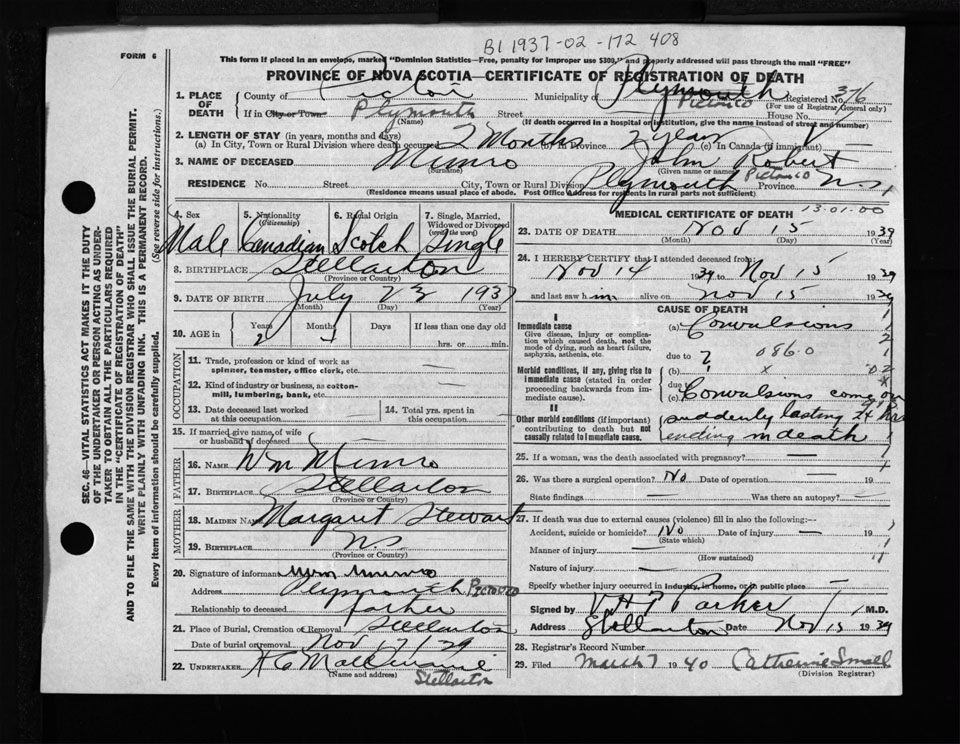 B1 1937-02-172 408
FORM 6
This form if placed in an envelope, marked "Dominion Statistics—Free, penalty for improper use $300," and properly addressed will pass through the mail "FREE"
PROVINCE OF NOVA SCOTIA—CERTIFICATE OF REGISTRATION OF DEATH
1. PLACE OF DEATH County of Pictou Municipality of Plymouth Pictou Co Registered No. 376
(For use of Registrar General only)
If in City or Town Plymouth Street House No.
(Name) (If death occurred in a hospital or institution, give the name instead of street and number)
2. LENGTH OF STAY (in years, months and days)
(a) In City, Town or Rural Division where death occurred 2 Months (b) In Province 2 years (c) In Canada (if immigrant) —
3. NAME OF DECEASED Munro John Robert
(Surname) (Given name or names)
RESIDENCE No. Street City, Town or Rural Division Plymouth Pictou Co Province N.S.
(Residence means usual place of abode. Post Office Address for residents in rural parts not sufficient)
SEC. 46—VITAL STATISTICS ACT MAKES IT THE DUTY
OF THE UNDERTAKER OR PERSON ACTING AS UNDER-
TAKER TO OBTAIN ALL THE PARTICULARS REQUIRED
IN THE "CERTIFICATE OF REGISTRATION OF DEATH"
AND TO FILE THE SAME WITH THE DIVISION REGISTRAR WHO SHALL ISSUE THE BURIAL PERMIT.
WRITE PLAINLY WITH UNFADING INK. THIS IS A PERMANENT RECORD.
Every item of information should be carefully supplied. (See reverse side for instructions.)
4. Sex 5. Nationality (Citizenship) 6. Racial Origin 7. Single, Married, Widowed or Divorced (write the word)
Male Canadian Scotch Single
8. BIRTHPLACE Stellarton
(Province or Country)
9. DATE OF BIRTH July 23 1937
(Month) (Day) (Year)
10. AGE in Years Months Days If less than one day old
2 hrs. or min.
OCCUPATION
11. Trade, profession or kind of work as spinner, teamster, office clerk, etc. —
12. Kind of industry or business, as cotton-mill, lumbering, bank, etc. —
13. Date deceased last worked at this occupation — 14. Total yrs. spent in this occupation —
15. If married give name of wife or husband of deceased
FATHER
16. NAME Wm Munro
17. BIRTHPLACE Stellarton
(Province or Country)
MOTHER
18. MAIDEN NAME Margaret Stewart
19. BIRTHPLACE N.S.
(Province or Country)
20. Signature of informant Wm Munro
Address Plymouth Pictou Co
Relationship to deceased father
21. Place of Burial, Cremation or Removal Stellarton
Date of burial or removal Nov 17/39
22. UNDERTAKER
(Name and address)
Stellarton
MEDICAL CERTIFICATE OF DEATH 13.01.00
23. DATE OF DEATH Nov 15 1939
(Month) (Day) (Year)
24. I HEREBY CERTIFY that I attended deceased from:
Nov 14 1939 to Nov 15 1939
and last saw him alive on Nov 15 1939
CAUSE OF DEATH
I
Immediate cause (a) Convulsions
Give disease, injury or complication which caused death, not the mode of dying, such as heart failure, asphyxia, asthenia, etc.
due to ? 086.0
Morbid conditions, if any, giving rise to immediate cause (stated in order proceeding backwards from immediate cause). (b) x
due (c) Convulsions coming on
II
Other morbid conditions (if important) contributing to death but not causally related to immediate cause. suddenly lasting 24 hrs
ending in death
25. If a woman, was the death associated with pregnancy? —
26. Was there a surgical operation? No Date of operation — 19
State findings — Was there an autopsy? —
27. If death was due to external causes (violence) fill in also the following:—
Accident, suicide or homicide? No Date of injury — 19
(State which)
Manner of injury —
(How sustained)
Nature of injury —
Specify whether injury occurred in industry, in home, or in public place —
Signed by Parker M.D.
Address Stellarton Date Nov 15 1939
28. Registrar's Record Number
29. Filed March 7 1940 Catherine Small
(Division Registrar)